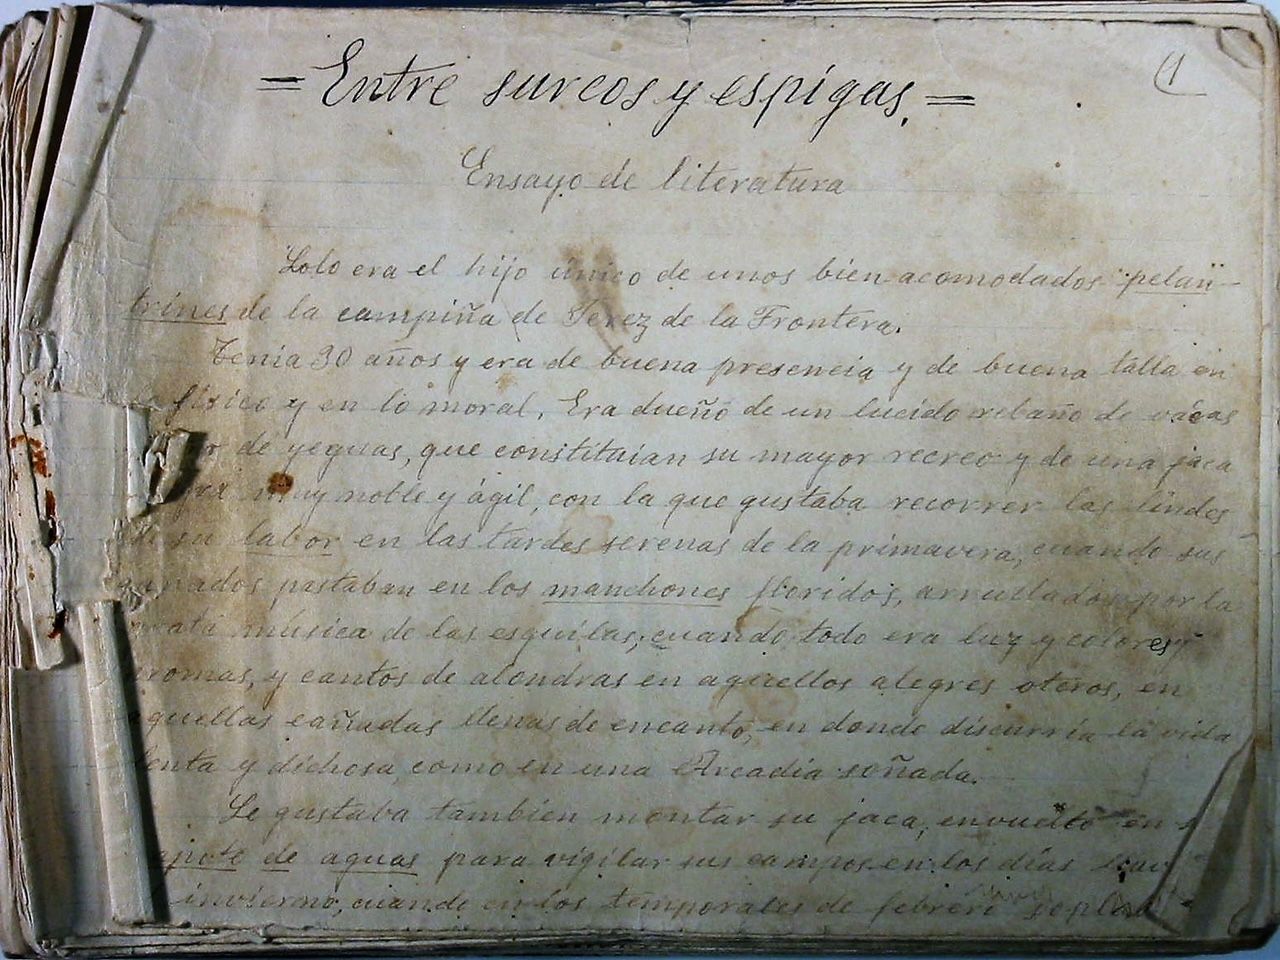 = Entre surcos y espigas. =
(1
Ensayo de literatura
Lolo era el hijo único de unos bien acomodados "pelan"-
trines de la campiña de Jerez de la Frontera.
Tenia 30 años y era de buena presencia y de buena talla en
fisico y en lo moral. Era dueño de un lucido rebaño de vacas
de yeguas, que constituian su mayor recreo y de una jaca
muy noble y ágil, con la que gustaba recorrer las lindes
de su labor en las tardes serenas de la primavera, cuando sus
ganados pastaban en los manchones floridos, arrullados por la
música de las esquilas; cuando todo era luz y colores y
aromas, y cantos de alondras en aquellos alegres oteros, en
aquellas cañadas llenas de encanto, en donde discurría la vida
lenta y dichosa, como en una Arcadia soñada.
Le gustaba tambien montar su jaca, envuelto en
de aguas para vigilar sus campos en los días
invierno, cuando en los temporales de